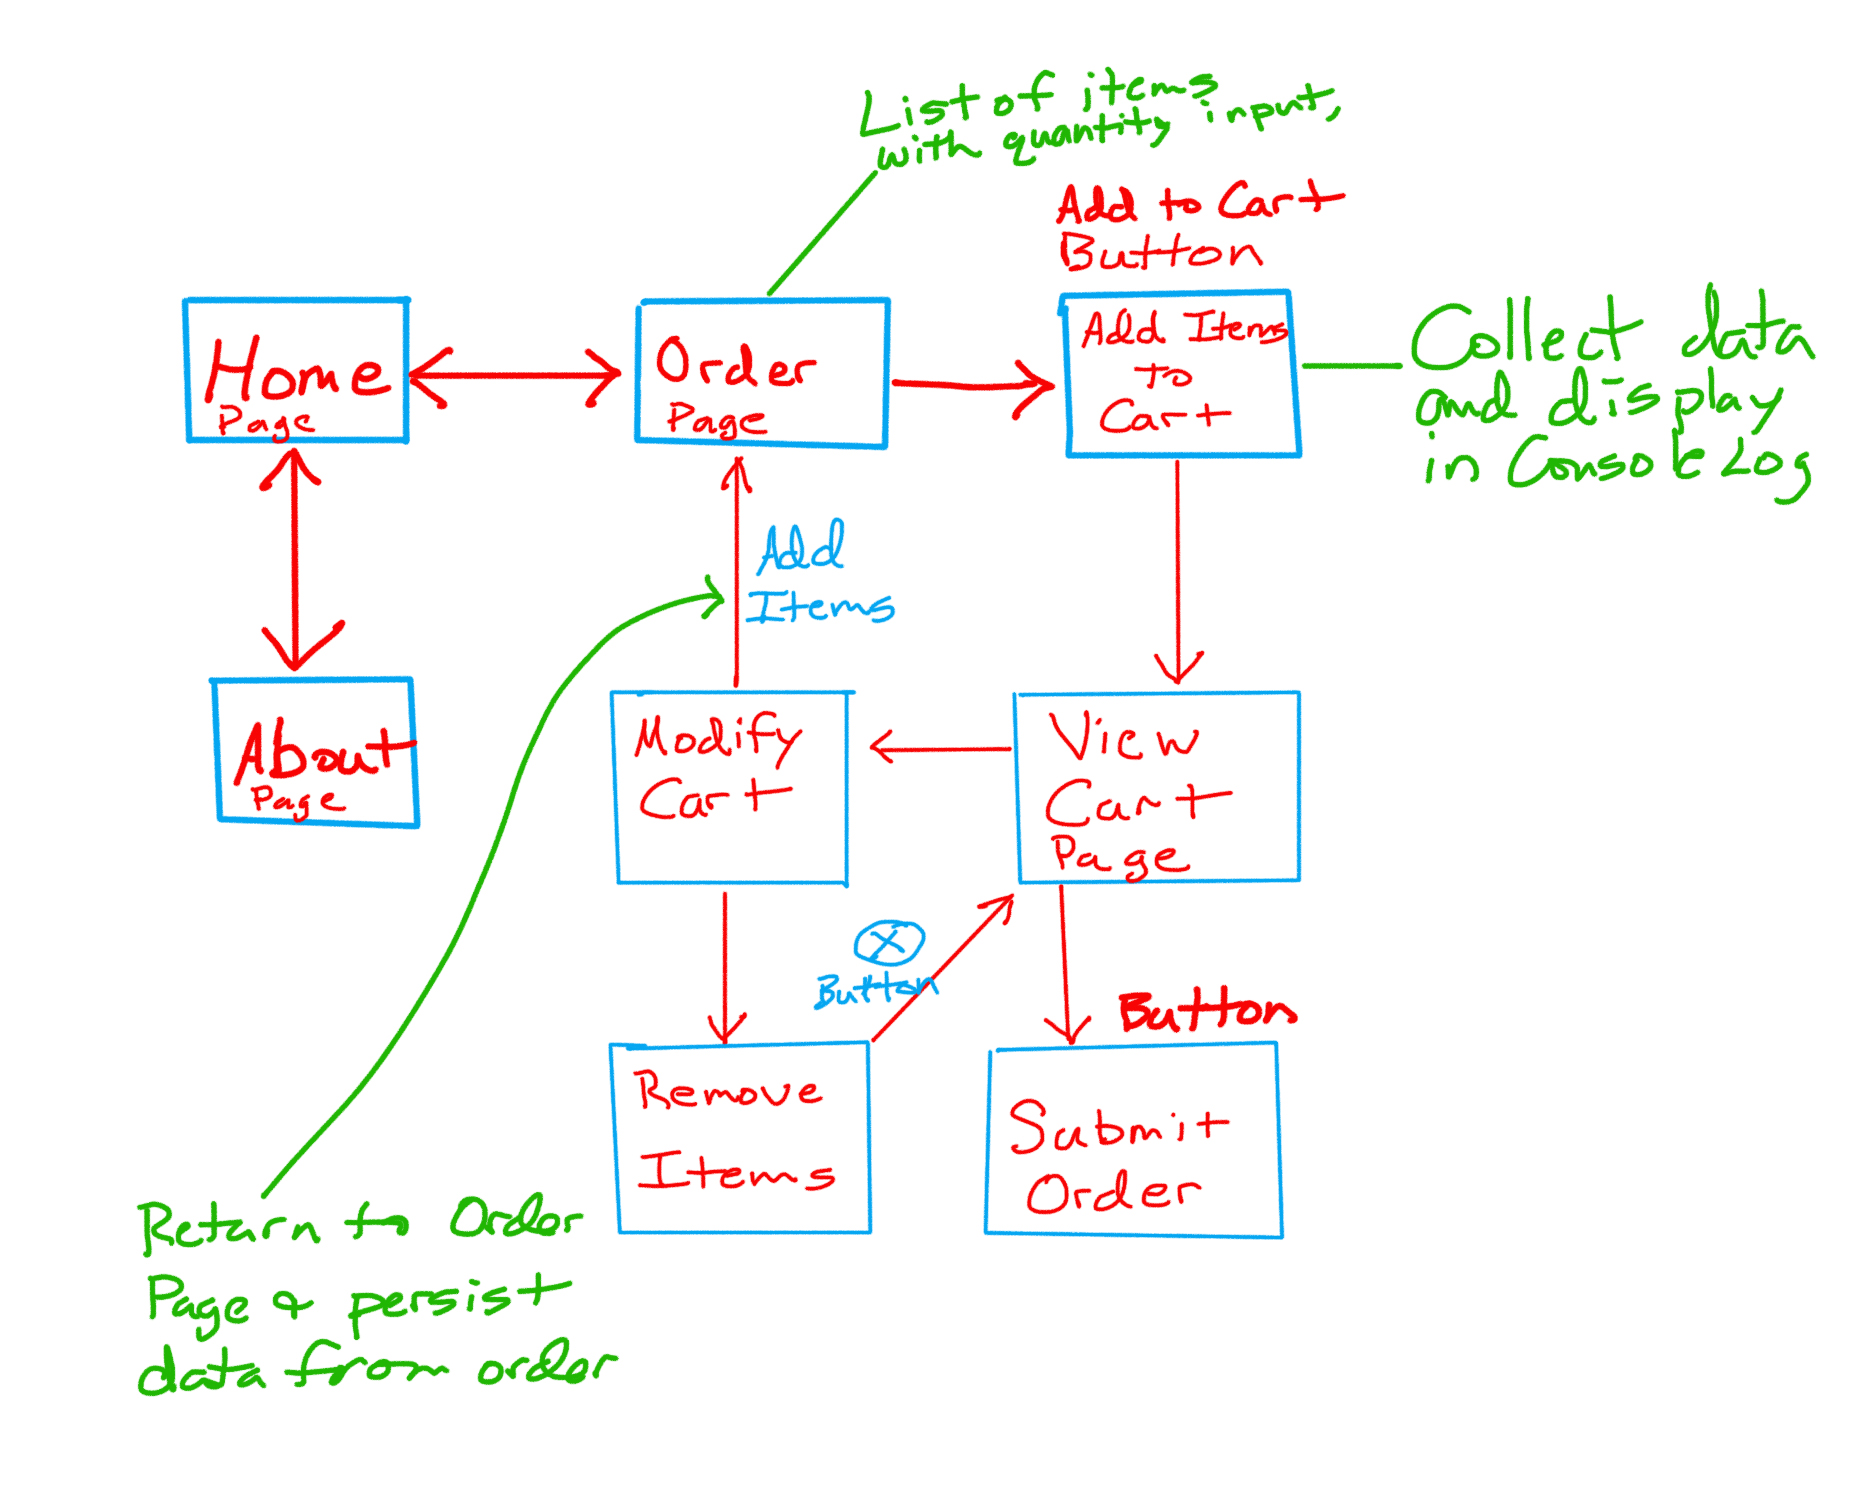 List of items
with quantity input,
Add to Cart
Button
Home
Page
Order
Page
Add Items
to
Cart
Collect data
and display
in Console Log
Add
Items
About
Page
Modify
Cart
View
Cart
Page
X
Button
Button
Remove
Items
Submit
Order
Return to Order
Page & persist
data from order